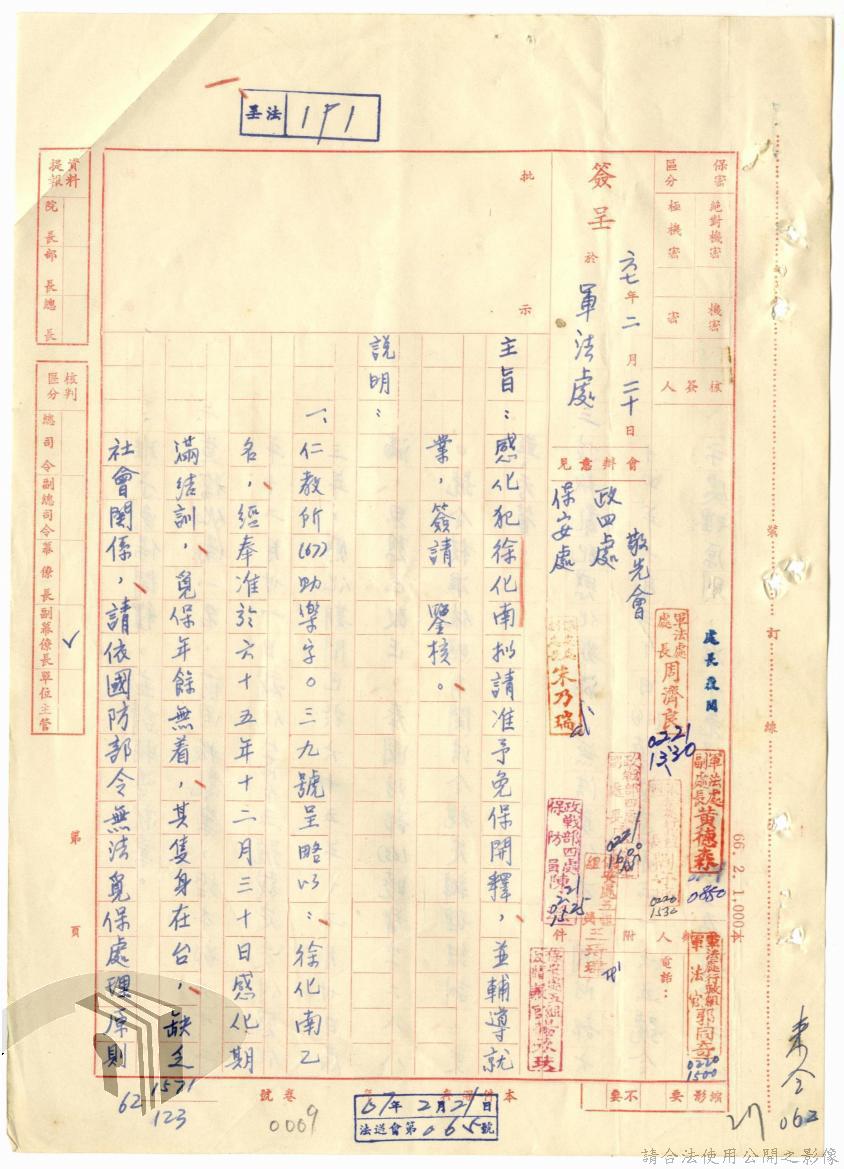 法丟 191
保密區分
絕對機密
極機密
機密
密
核簽人
簽呈
六七年二月二十日
於
軍法處
會辦意見
敬先會
政四處
保安處
處長投閱
軍法處處長周濟良
0221
1330
軍法處副處長黃德森
0850
朱乃瑞
政戰部四處保防員陳
1525
0220
1530
附件
人
電話：
軍法處行政組軍法官郭同奇
0220
1500
縮影
要
不要
批示
主旨：感化犯徐化南擬請准予免保開釋，並輔導就
業，簽請　鑒核。
說明：
一、仁教所(67)助學字○三九號呈略以：徐化南乙
名，經奉准於六十五年十二月三十日感化期
滿結訓，覓保年餘無着，其隻身在台，缺乏
社會關係，請依國防部令無法覓保處理原則
資料提報
院長
部長
總長
核判區分
總司令
副總司令
幕僚長
副幕僚長
單位主管
✓
第　頁
裝訂線
66.2.1,000本
卷號
67年2月21日
法送會第065號
62
1571
123
0009
27
062
請合法使用公開之影像